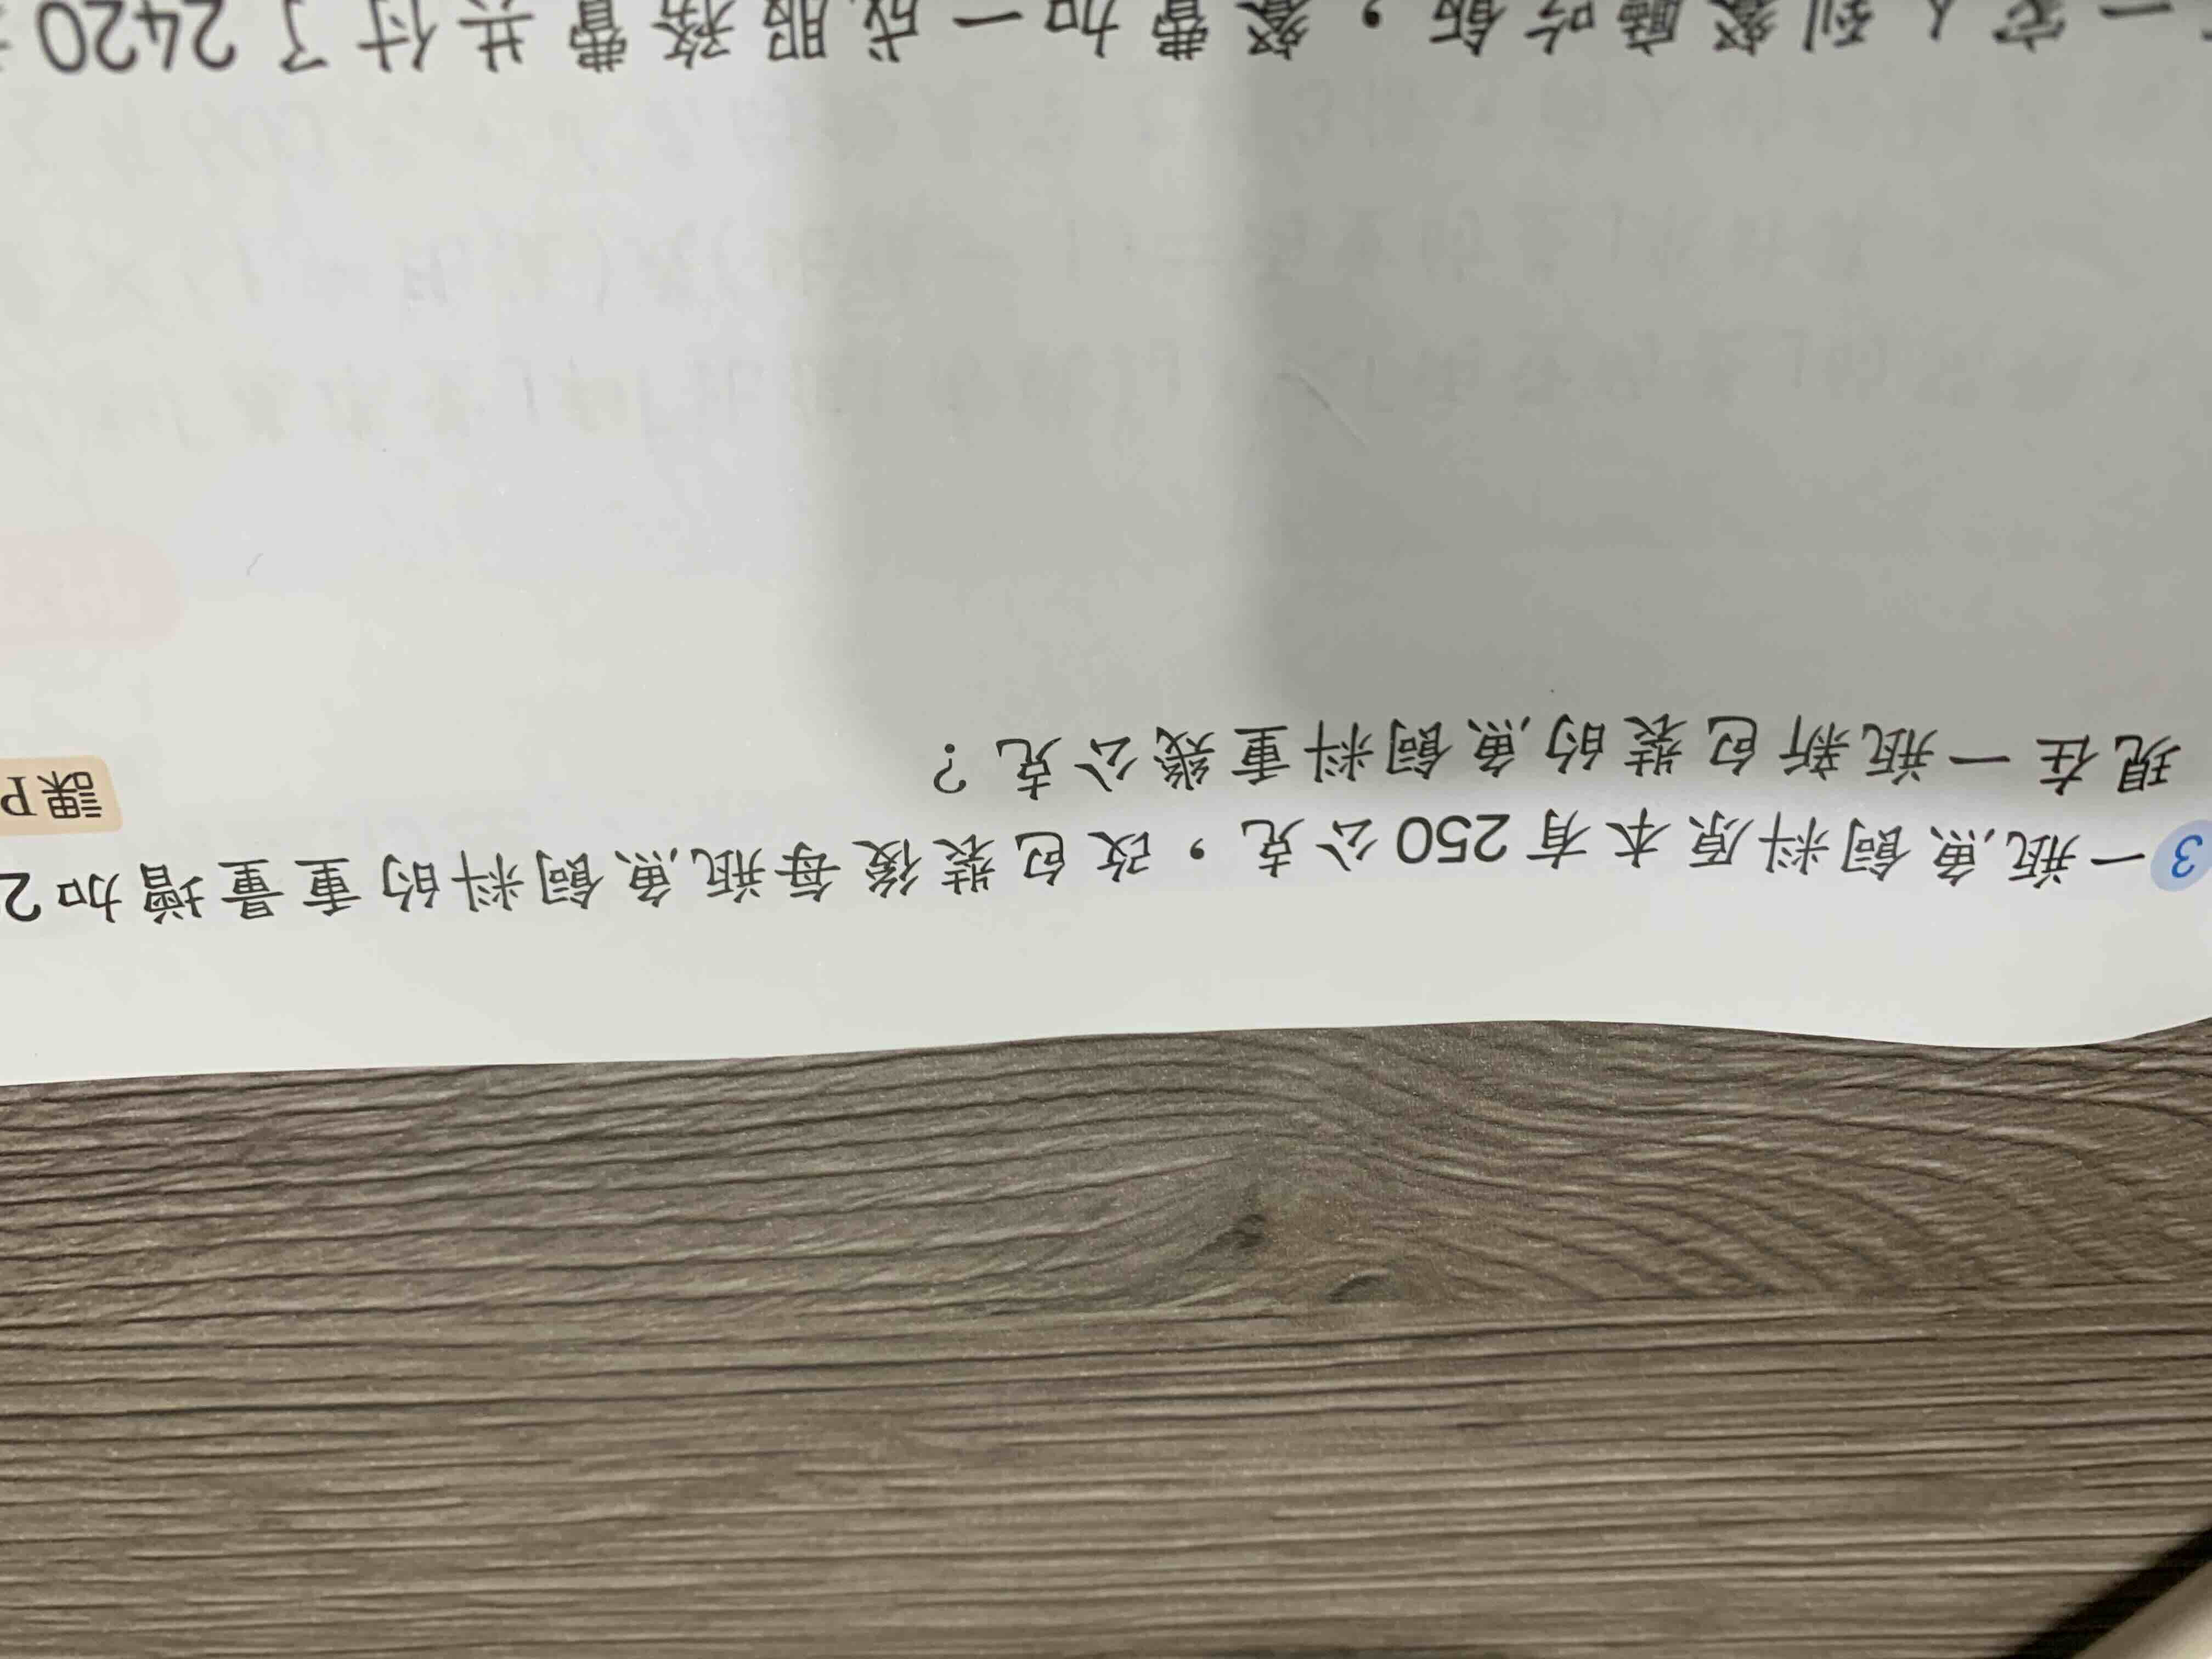 3 一瓶魚飼料原本有250公克，改包裝後每瓶魚飼料的重量增加2
現在一瓶新包裝的魚飼料重幾公克？
課P
一家人到餐廳吃飯，餐費加一成服務費共付了2420